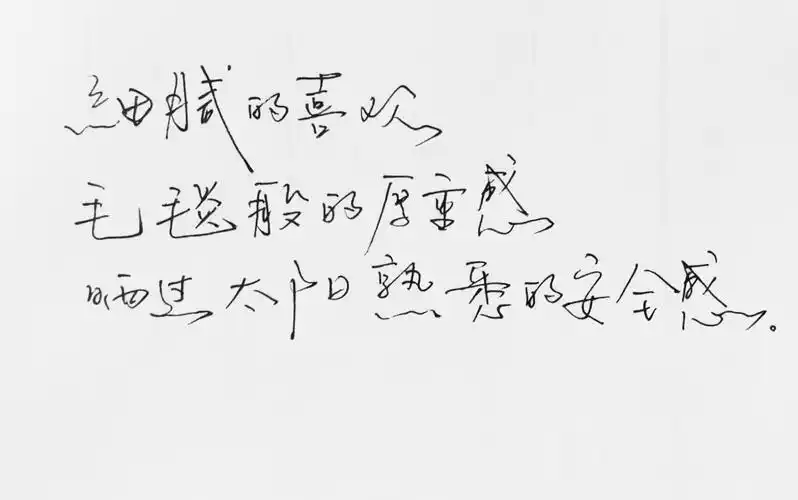 細腻的喜欢
毛毯般的厚重感
晒过太阳熟悉的安全感。